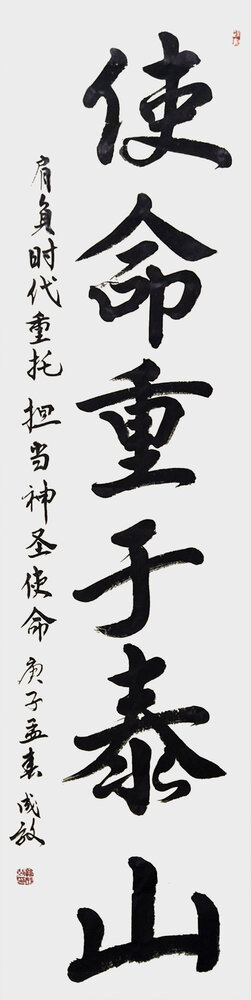 使命重于泰山
肩负时代重托 担当神圣使命 庚子孟春 成敏